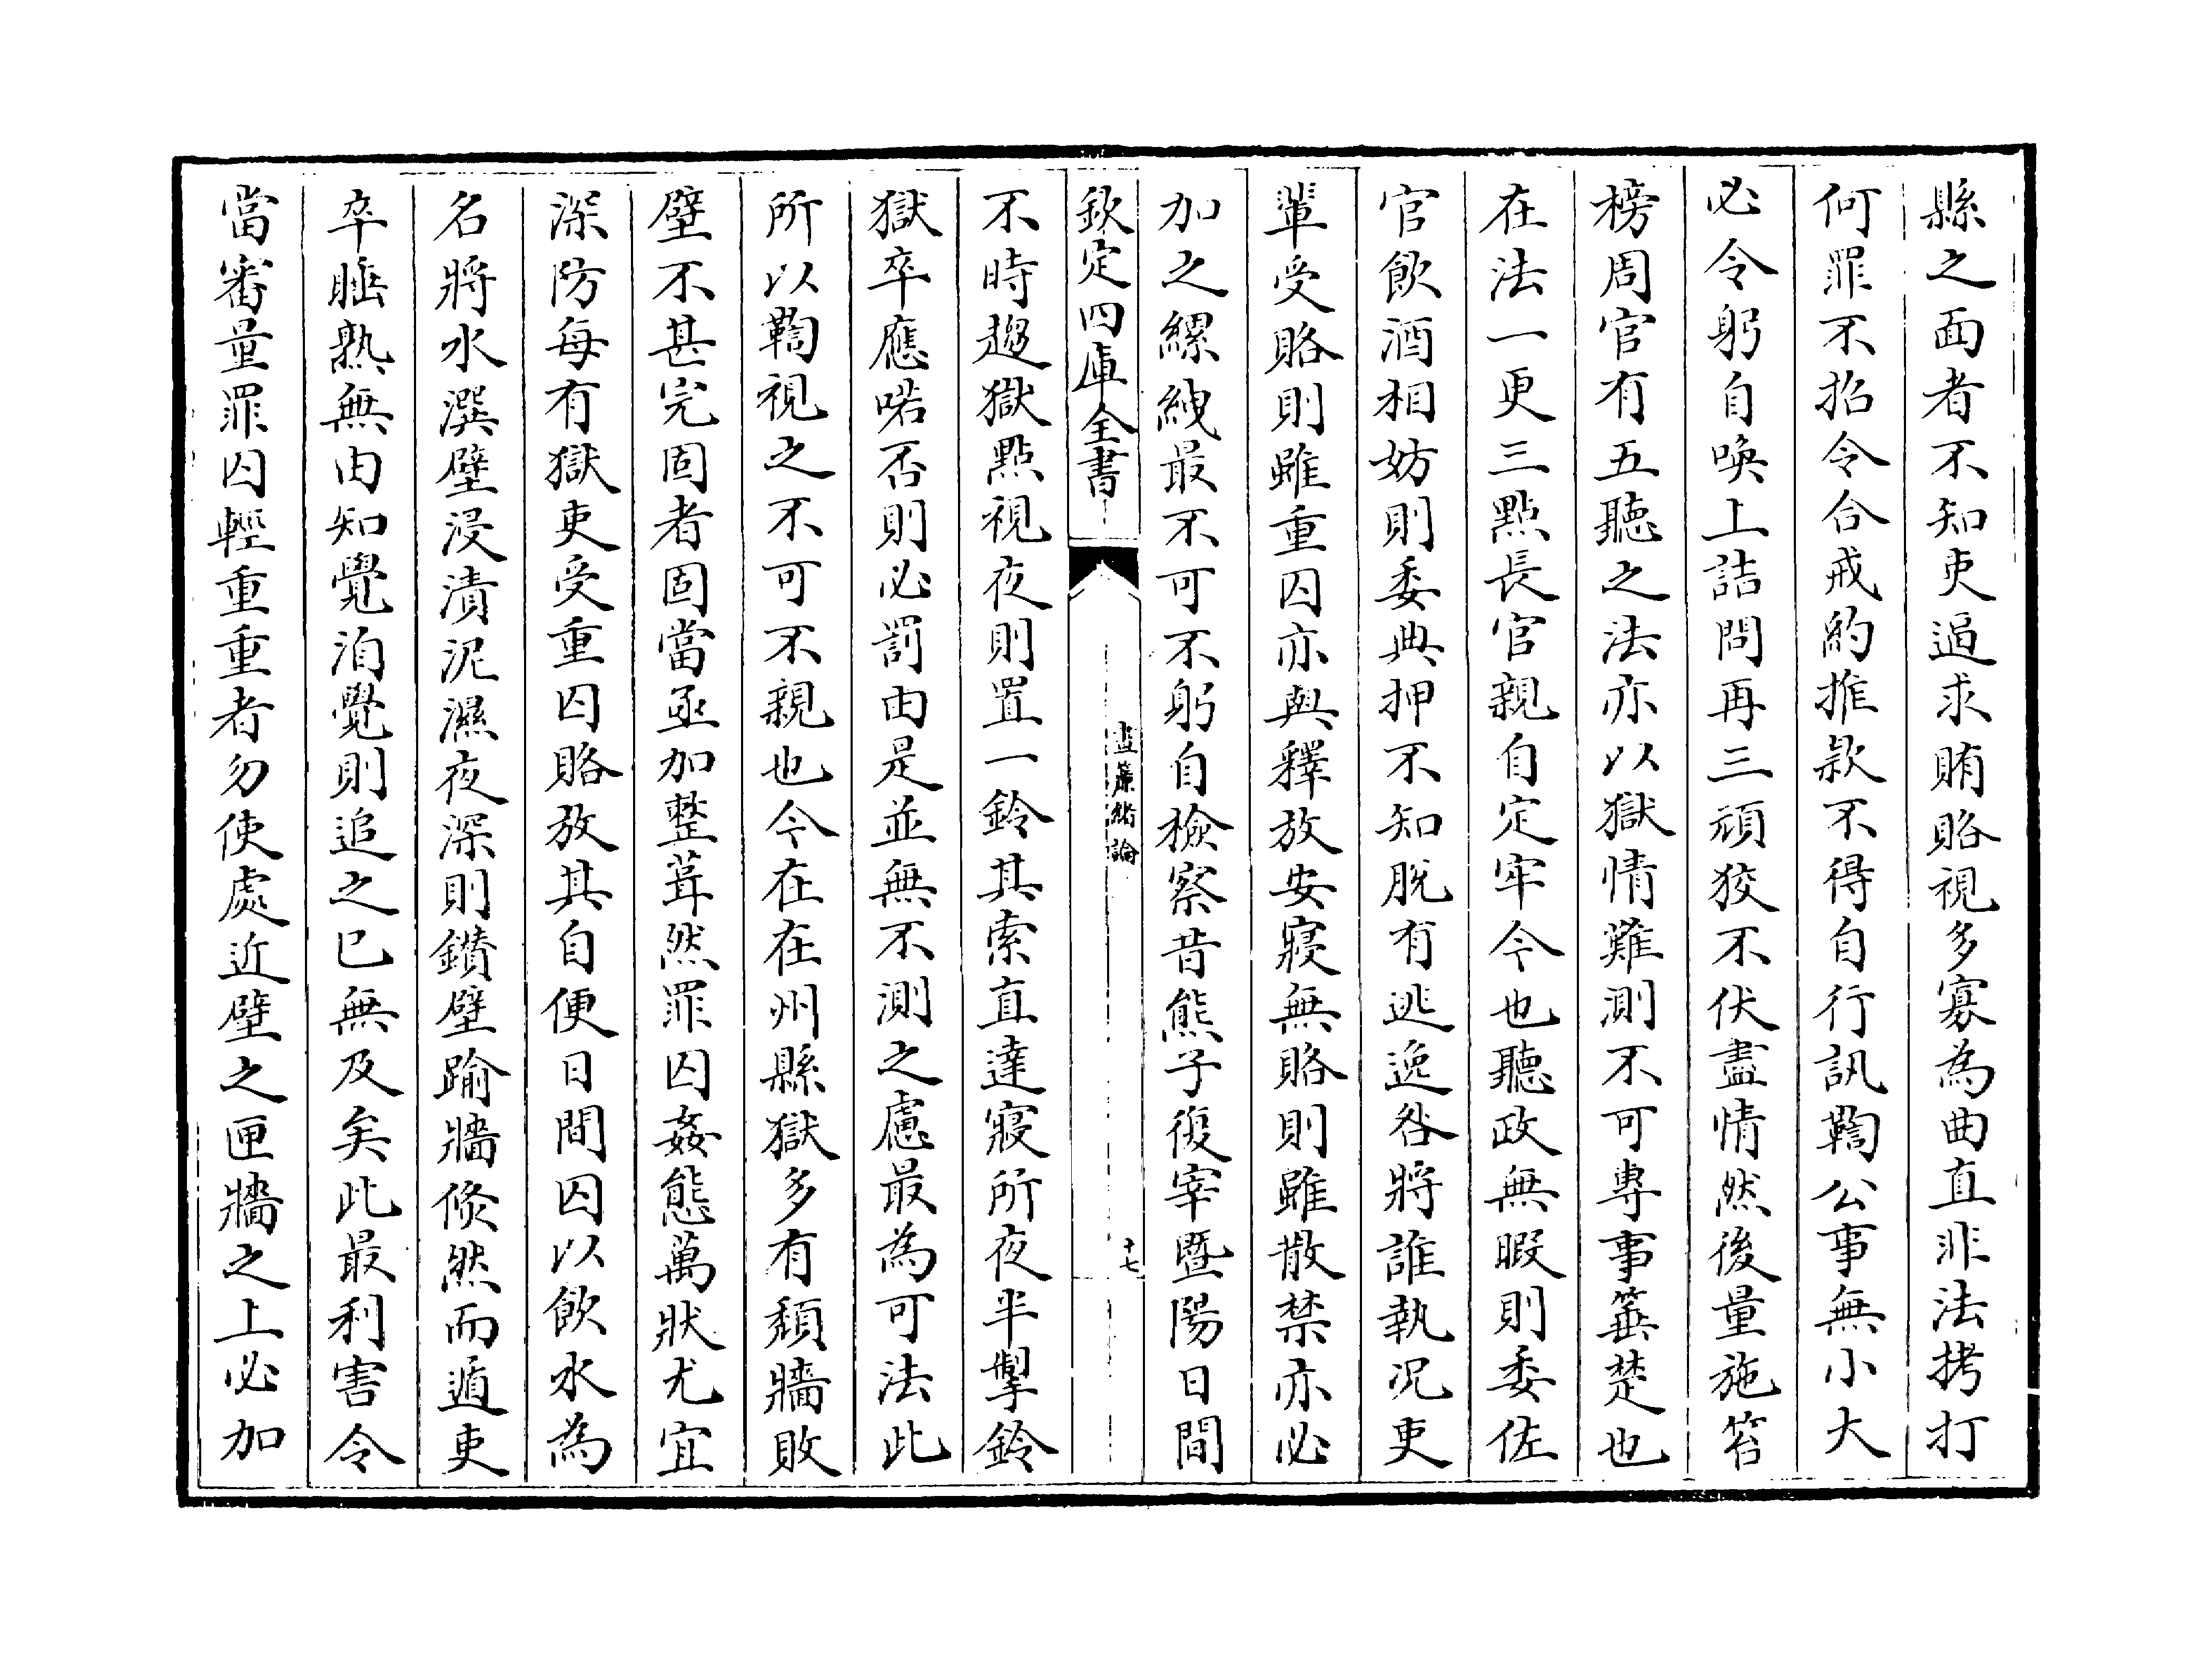 縣之面者不知吏逼求賄賂視多寡為曲直非法拷打
何罪不招令合戒約推款不得自行訊鞫公事無小大
必令躬自喚上詰問再三頑狡不伏盡情然後量施笞
榜周官有五聽之法亦以獄情難測不可專事箠楚也
在法一更三點長官親自定牢今也聽政無暇則委佐
官飲酒相妨則委典押不知脫有逃逸咎將誰執况吏
輩受賂則雖重囚亦與釋放安寢無賂則雖散禁亦必
加之縲絏最不可不躬自檢察昔熊子復宰暨陽日間
欽定四庫全書
晝簾緒論
十七
不時趨獄點視夜則置一鈴其索直達寢所夜半掣鈴
獄卒應喏否則必罰由是並無不測之慮最為可法此
所以鞫視之不可不親也今在在州縣獄多有頹牆敗
壁不甚完固者固當亟加整葺然罪囚姦態萬狀尤宜
深防每有獄吏受重囚賂放其自便日間囚以飲水為
名將水潠壁浸漬泥濕夜深則鑚壁踰牆倐然而遁吏
卒睡熟無由知覺洎覺則追之已無及矣此最利害令
當審量罪囚輕重重者勿使處近壁之匣牆之上必加